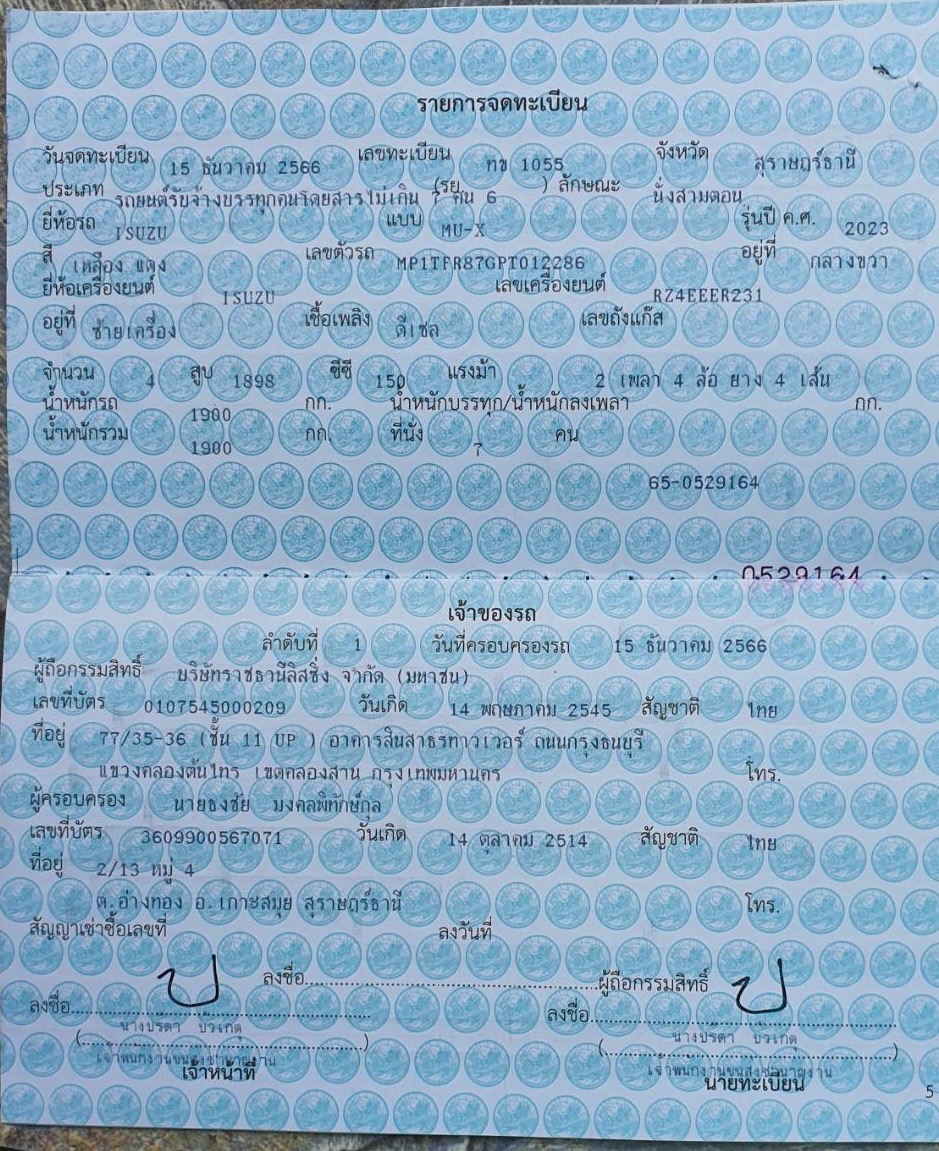 รายการจดทะเบียน
วันจดทะเบียน 15 ธันวาคม 2566 เลขทะเบียน ทข 1055 จังหวัด สุราษฎร์ธานี
ประเภท รถยนต์รับจ้างบรรทุกคนโดยสารไม่เกิน 7 คน (รย. 6 ) ลักษณะ นั่งสามตอน
ยี่ห้อรถ ISUZU แบบ MU-X รุ่นปี ค.ศ. 2023
สี เหลือง แดง เลขตัวรถ MP1TFR87GPT012286 อยู่ที่ กลางขวา
ยี่ห้อเครื่องยนต์ ISUZU เลขเครื่องยนต์ RZ4EEER231
อยู่ที่ ซ้ายเครื่อง เชื้อเพลิง ดีเซล เลขถังแก๊ส
จำนวน 4 สูบ 1898 ซีซี 150 แรงม้า 2 เพลา 4 ล้อ ยาง 4 เส้น
น้ำหนักรถ 1900 กก. น้ำหนักบรรทุก/น้ำหนักลงเพลา กก.
น้ำหนักรวม 1900 กก. ที่นั่ง 7 คน
65-0529164
0529164
เจ้าของรถ
ลำดับที่ 1 วันที่ครอบครองรถ 15 ธันวาคม 2566
ผู้ถือกรรมสิทธิ์ บริษัทราชธานีลิสซิ่ง จำกัด (มหาชน)
เลขที่บัตร 0107545000209 วันเกิด 14 พฤษภาคม 2545 สัญชาติ ไทย
ที่อยู่ 77/35-36 (ชั้น 11 UP ) อาคารสินสาธรทาวเวอร์ ถนนกรุงธนบุรี
แขวงคลองต้นไทร เขตคลองสาน กรุงเทพมหานคร โทร.
ผู้ครอบครอง นายธงชัย มงคลพิทักษ์กุล
เลขที่บัตร 3609900567071 วันเกิด 14 ตุลาคม 2514 สัญชาติ ไทย
ที่อยู่ 2/13 หมู่ 4
ต.อ่างทอง อ.เกาะสมุย สุราษฎร์ธานี โทร.
สัญญาเช่าซื้อเลขที่ ลงวันที่
ลงชื่อ ผู้ถือกรรมสิทธิ์
ลงชื่อ ลงชื่อ
นางปรีดา บัวเกตุ นางปรีดา บัวเกตุ
เจ้าพนักงานขนส่งชำนาญงาน เจ้าพนักงานขนส่งชำนาญงาน
เจ้าหน้าที่ นายทะเบียน
5